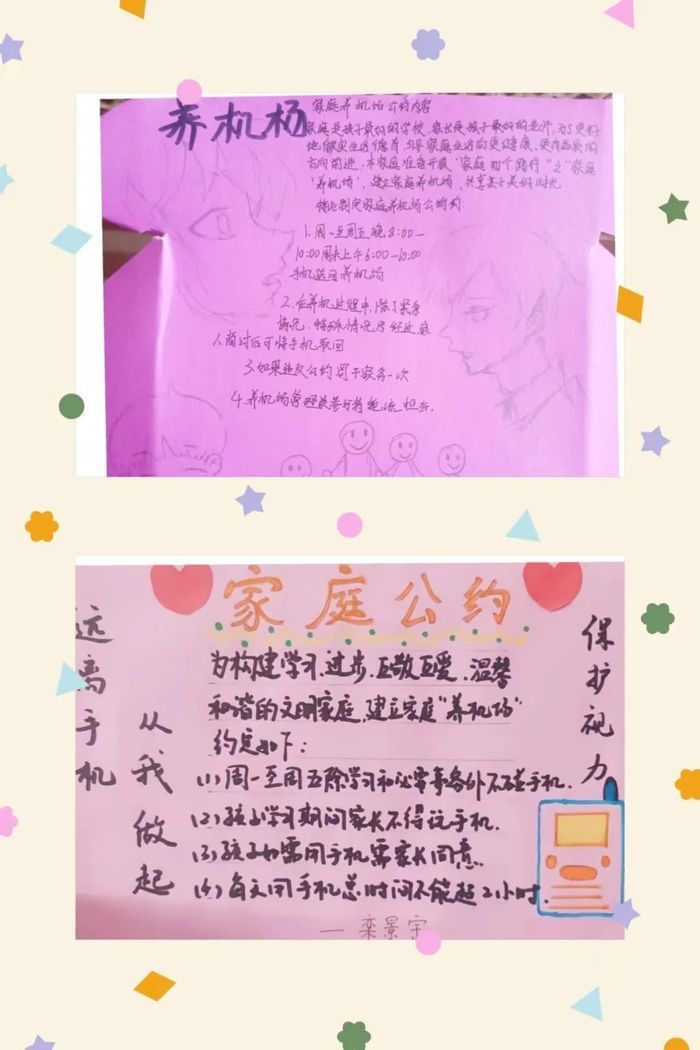 养机场
家庭养机场公约内容
家庭是孩子最好的学校，家长是孩子最好的老师，为了更好
地做实生活德育，引导家庭生活向更健康、更有品质的
方向前进，本家庭准备开展"家庭四个路行"之"家庭
"养机场"，建立家庭养机场，共享亲子美好时光
特此制定家庭养机场公约约：
1. 周一至周五晚 8:00—
10:00 周末上午 6:00—10:00
手机送回养机场
2. 在养机过程中，除了紧急
情况，特殊情况 经过 家
人商讨后可将手机取回
3. 如果违反公约 罚 家务一次
4. 养机场管理 轮流担当.
家庭公约
为构建学习、进步、互敬互爱、温馨
和谐的文明家庭，建立家庭"养机场"
约定如下：
(1) 周一至周五除学习和必要事务外不碰手机.
(2) 孩子学习期间家长不得玩手机.
(3) 孩子如需用手机需家长同意.
(4) 每天用手机总时间不能超2小时.
— 栾景宇
远离手机
从我做起
保护视力